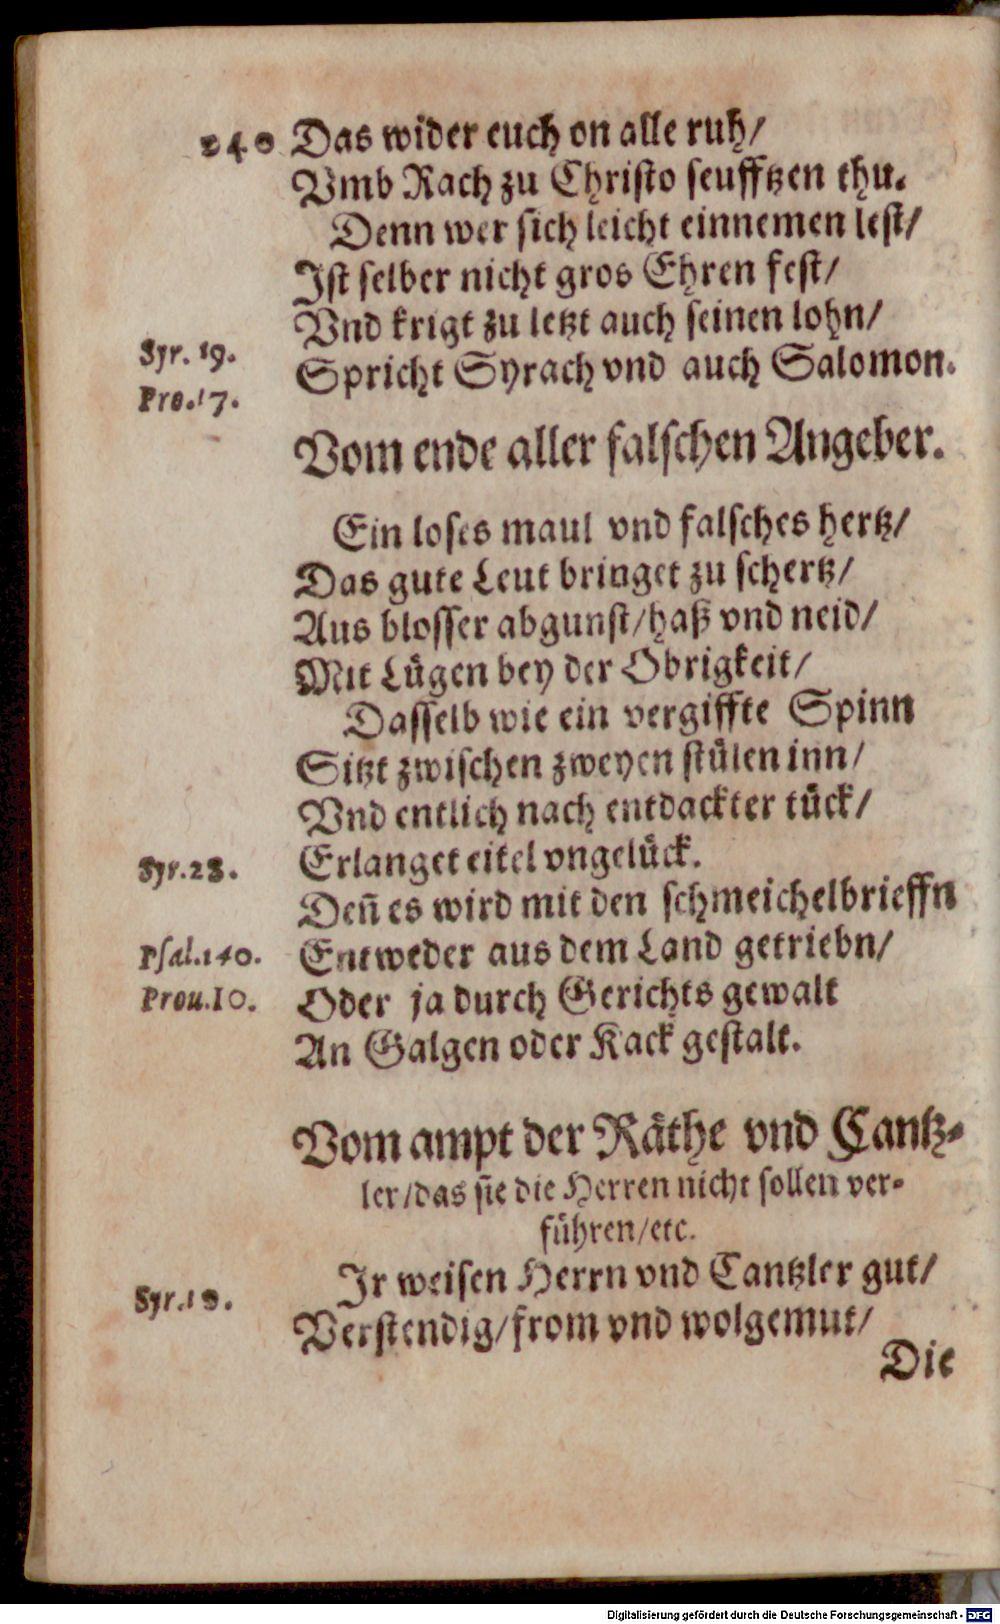 240 Das wider euch on alle ruh/
Vmb Rach zu Christo seufftzen thu.
Denn wer sich leicht einnemen lest/
Ist selber nicht gros Ehren fest/
Vnd krigt zu letzt auch seinen lohn/
Syr. 19.
Spricht Syrach vnd auch Salomon.
Pro. 17.
Vom ende aller falschen Angeber.
Ein loses maul vnd falsches hertz/
Das gute Leut bringet zu schertz/
Aus blosser abgunst/haß vnd neid/
Mit Lügen bey der Obrigkeit/
Dasselb wie ein vergiffte Spinn
Sitzt zwischen zweyen stülen inn/
Vnd entlich nach entdackter tück/
Syr. 28. Erlanget eitel vngelück.
Deñ es wird mit den schmeichelbrieffn
Psal. 140. Entweder aus dem Land getriebn/
Prou. 10. Oder ja durch Gerichts gewalt
An Galgen oder Kack gestalt.
Vom ampt der Räthe vnd Cantz-
ler/das sie die Herren nicht sollen ver-
führen/etc.
Ir weisen Herrn vnd Cantzler gut/
Syr.
Verstendig/from vnd wolgemut/
Die
Digitalisierung gefördert durch die Deutsche Forschungsgemeinschaft - DFG